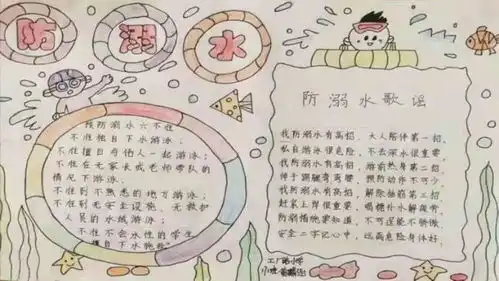 防溺水
预防溺水六不准
不准独自下水游泳;
不准擅自与他人一起游泳;
不准在无家长或老师带队的
情况下游泳;
不准到不熟悉的地方游泳;
不准到无安全设施、无救护
人员的水域游泳;
不准不会水性的学生
擅自下水施救
防溺水歌谣
我防溺水有高招,大人陪伴第一招,
私自游泳很危险,不去深水很重要,
我防溺水有高招,游前热身第二招,
伸手踢腿弯弯腰,预防动作不可少,
我防溺水有高招,解除抽筋第三招,
赶紧上岸很重要,喝糖补水解疲劳,
防溺措施要知道,不可逞能不骄傲,
安全二字记心中,远离危险身体好,
小学